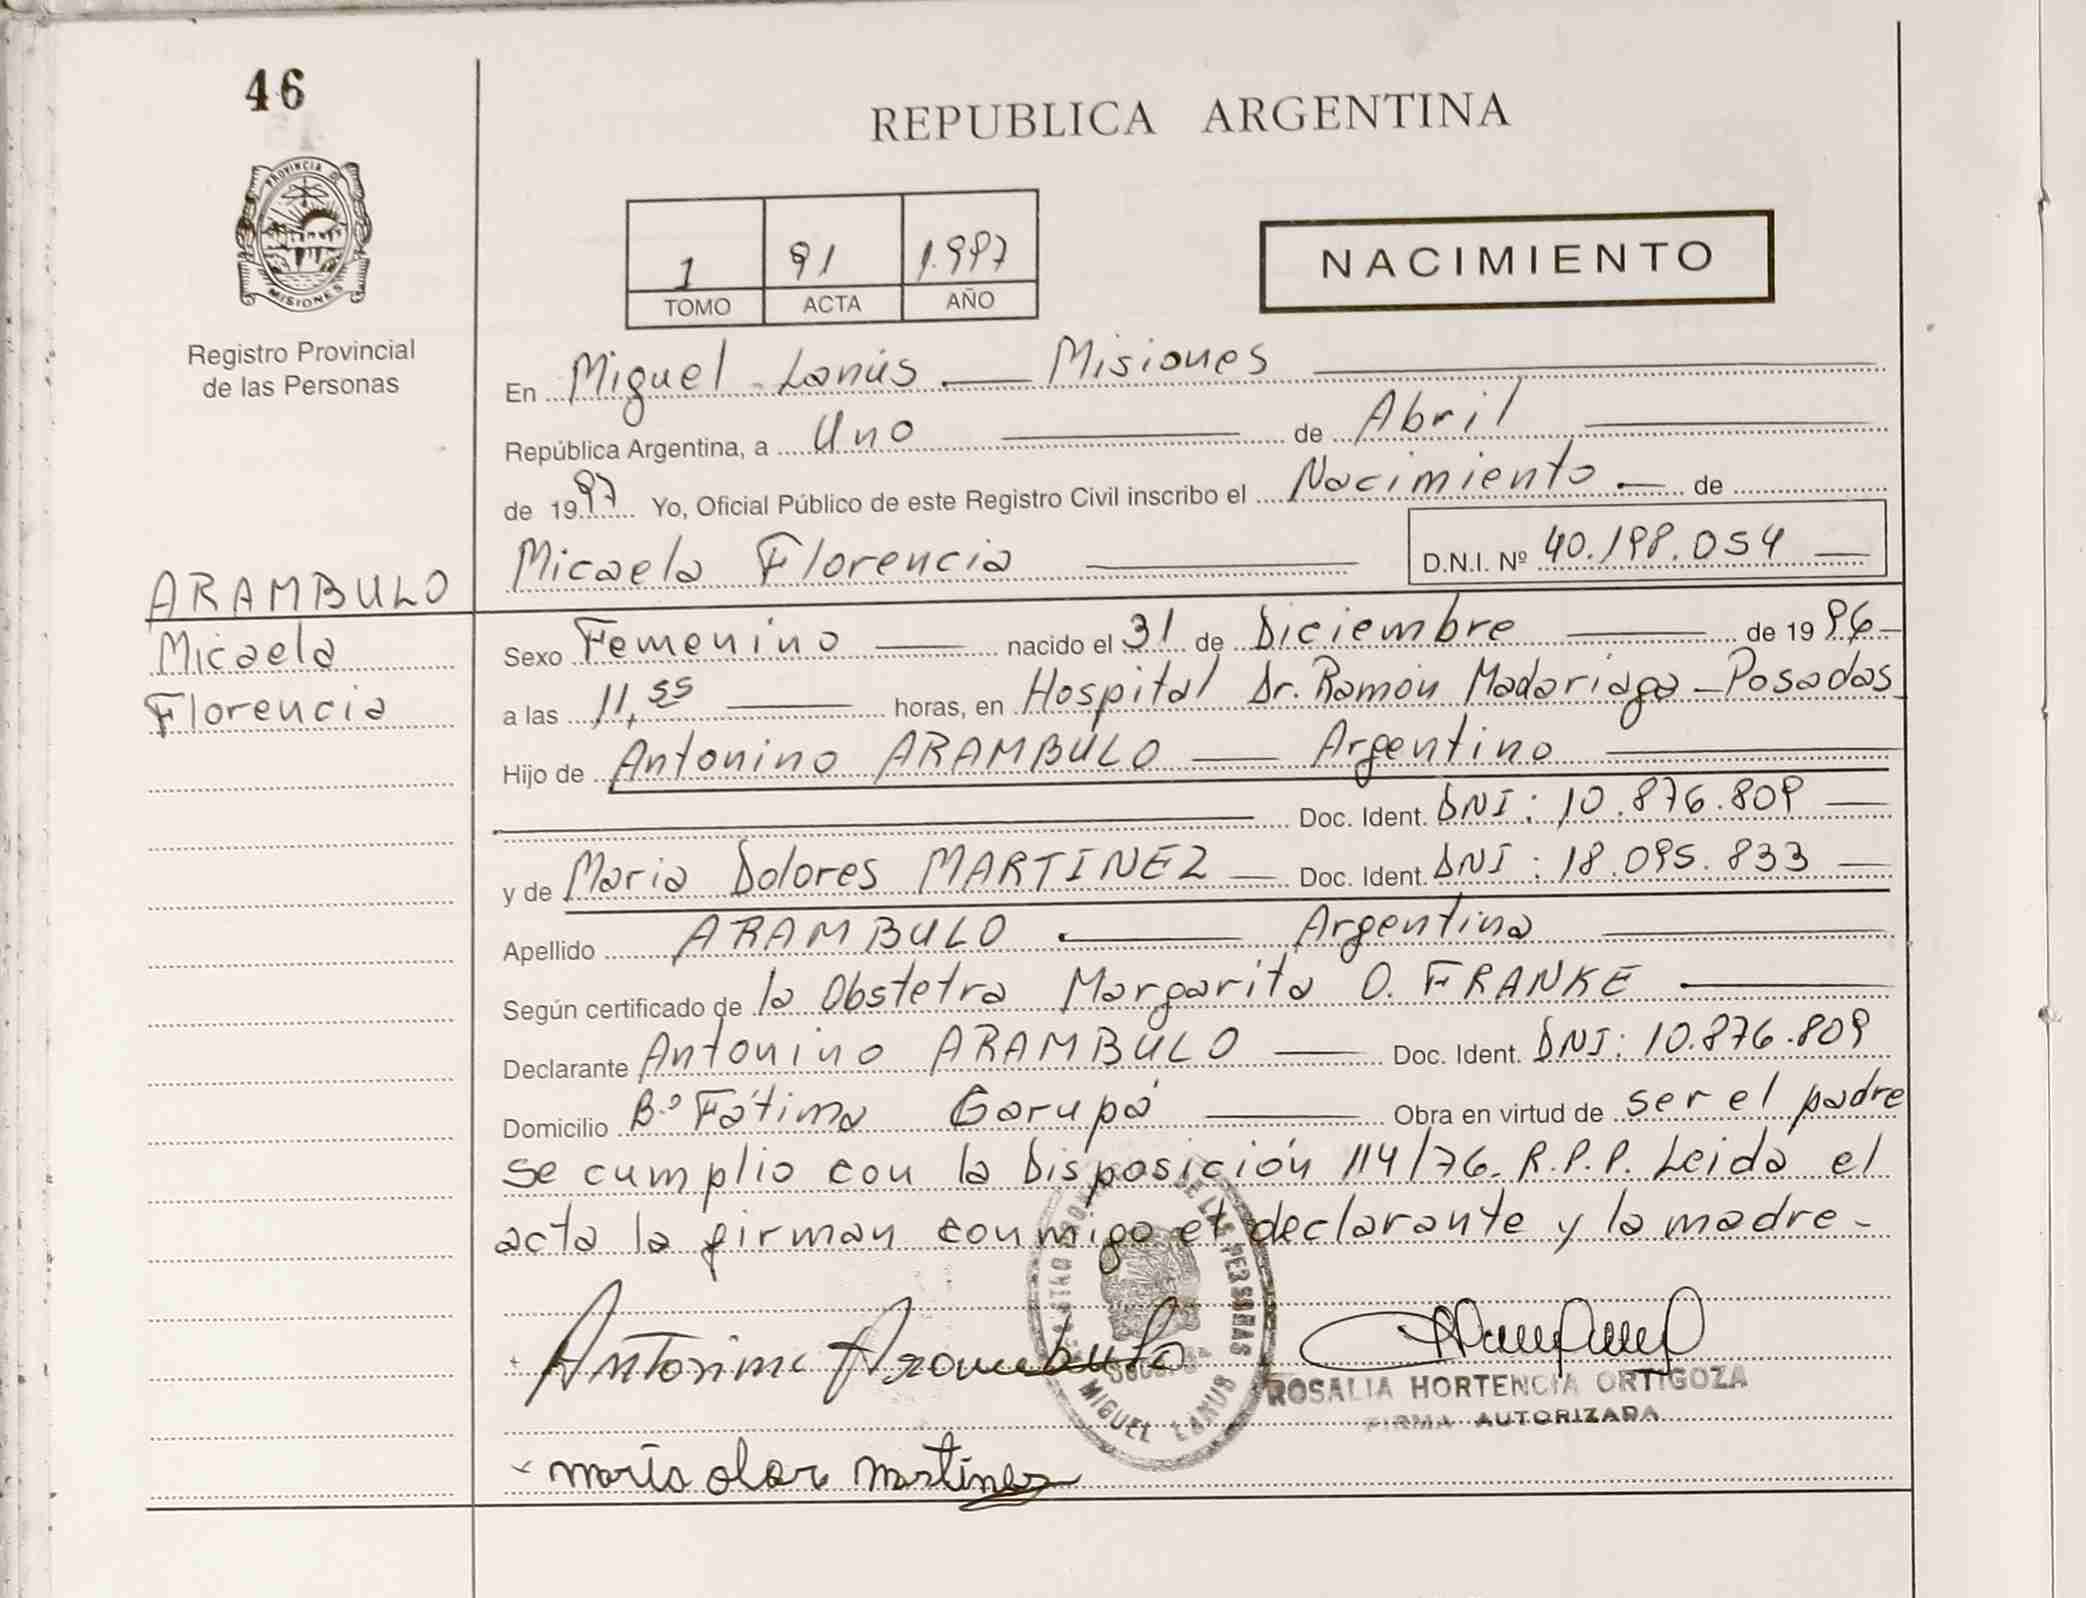 46
REPUBLICA ARGENTINA
PROVINCIA D
MISIONES
Registro Provincial
de las Personas
1 91 1.997
TOMO ACTA AÑO
NACIMIENTO
En Miguel Lanús Misiones
República Argentina, a Uno de Abril
de 1997 Yo, Oficial Público de este Registro Civil inscribo el Nacimiento de
Micaela Florencia D.N.I. Nº 40.198.054
ARAMBULO
Micaela
Florencia
Sexo Femenino nacido el 31 de Diciembre de 1996
a las 11,55 horas, en Hospital Dr. Ramón Madariaga - Posadas
Hijo de Antonino ARAMBULO Argentino
Doc. Ident. DNI: 10.876.809
y de Maria Dolores MARTINEZ Doc. Ident. DNI: 18.095.833
Apellido ARAMBULO Argentina
Según certificado de la Obstetra Margarita O. FRANKE
Declarante Antonino ARAMBULO Doc. Ident. DNI: 10.876.809
Domicilio B.º Fátima Garupá Obra en virtud de ser el padre
se cumplio con la Disposición 114/76. R.P.P. Leida el
acta la firman conmigo el declarante y la madre -
Antonino Arambulo
DE LAS PERSONAS
MIGUEL LANUS
ROSALIA HORTENCIA ORTIGOZA
FIRMA AUTORIZADA
maria martinez